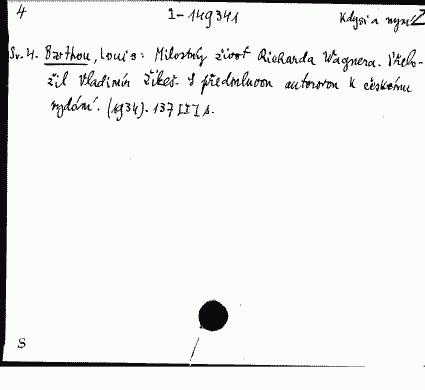 4 1-149341 Kdysi a nyní
Sv. 4. Barthou, Louis: Milostný život Richarda Wagnera. Přelo-
žil Vladimír Žikeš. S předmluvou autorovou k českému
vydání. (1934). 137 [I] s.
S